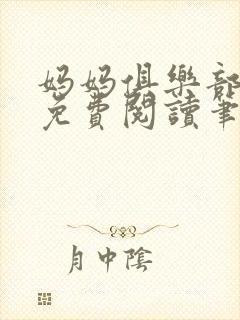 妈妈俱樂部
免費閱讀筆
月中陰